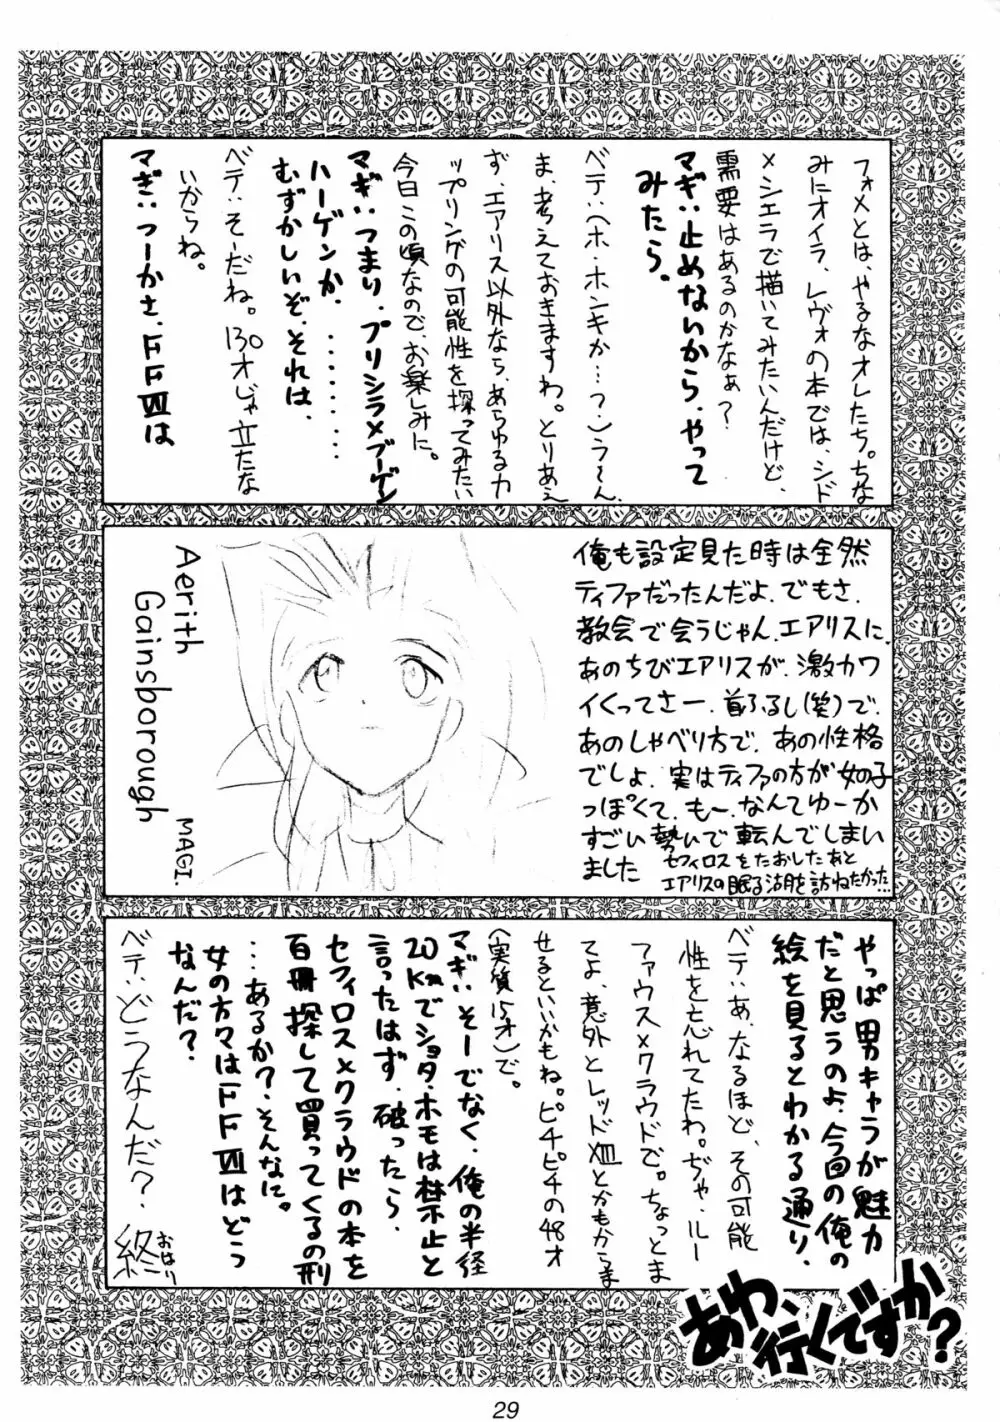 フォメとは、やるなオレたち。ちな
みにオイラ、レヴォの本では、シド
×シエラで描いてみたいんだけど、
需要はあるのかなぁ?
マギ:止めないから、やって
みたら。
ベテ:(ホ・ホンキか…?)う〜ん、
ま、考えておきますわ。とりあえ
ず、エアリス以外なら、あらゆるカ
ップリングの可能性を探ってみたい
今日この頃なので、お楽しみに。
マギ:つまり、プリシラ×ブーゲン
ハーゲンか、………
むずかしいぞ、それは、
ベテ:そーだね。130才じゃ立たな
いからね。
マギ:つーかさ、FFⅦは
俺も設定見た時は全然
ティファだったんだよ、でもさ、
教会で会うじゃん、エアリスに、
あのちびエアリスが、激カワ
イくってさー、首ふるし(笑)で、
あのしゃべり方で、あの性格
でしょ、実はティファの方が女の子
っぽくて、もー、なんてゆーか
すごい勢いで転んでしまい
ました
セフィロスをたおしたあと
エアリスの眠る湖を訪ねたかった…
Aerith
Gainsborough
MAGI.
やっぱ男キャラが魅力
だと思うのよ、今回の俺の
絵を見るとわかる通り、
ベテ:あ、なるほど、その可能
性を忘れてたわ。ぢゃ、ルー
ファウス×クラウドで。ちょっとま
てよ、意外とレッドⅩⅢとかもからま
せるといいかもね。ピチピチの48才
(実質15才)で。
マギ:そーでなく、俺の半径
20Kmでショタ・ホモは禁止と
言ったはず、破ったら、
セフィロス×クラウドの本を
百冊探して買ってくるの刑
…あるか?、そんなに。
女の方々はFFⅦはどう
なんだ?
ベテ:どうなんだ?
終
おはり
あわ、行くですか?
29